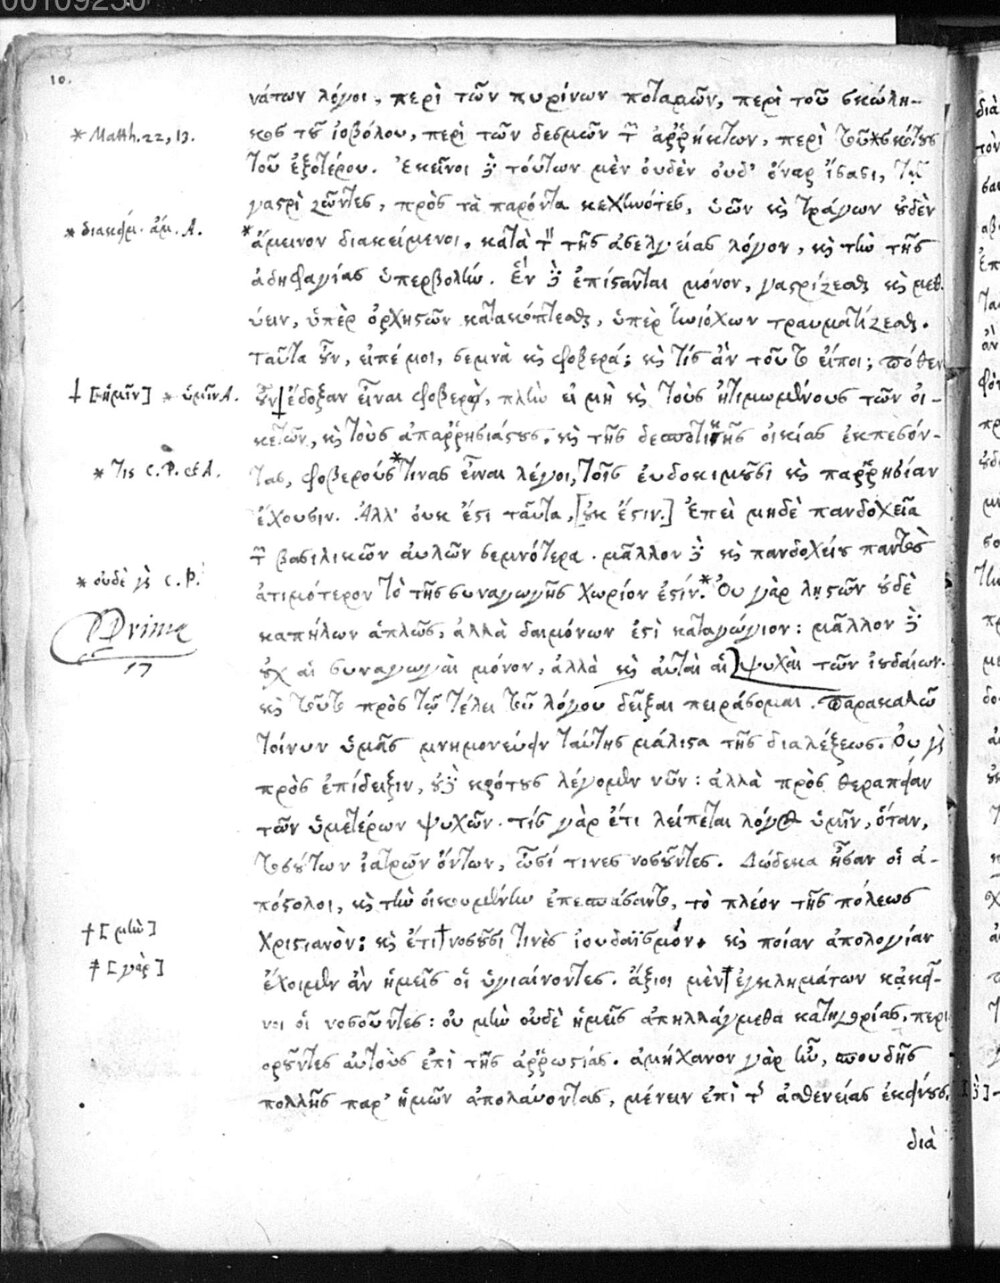 00109250
10.
νάτων λόγοι, περὶ τῶν πυρίνων ποταμῶν, περὶ τοῦ σκώλη-
* Matth. 22, 13.
κος τοῦ ἰοβόλου, περὶ τῶν δεσμῶν τῶν ἀῤῥήκτων, περὶ τοῦ * σκότους
τοῦ ἐξωτέρου. Ἐκεῖνοι δὲ τούτων μὲν οὐδὲν οὐδ' ὄναρ ἴσασι, τῇ
γαστρὶ ζῶντες, πρὸς τὰ παρόντα κεχηνότες, ὑῶν καὶ τράγων οὐδὲν
* διακείμ. ἀμ. A.
* ἄμεινον διακείμενοι, κατὰ τὸν τῆς ἀσελγείας λόγον, καὶ τὴν τῆς
ἀδηφαγίας ὑπερβολήν. Ἓν δὲ ἐπίστανται μόνον, γαστρίζεσθαι καὶ μεθ-
ύειν, ὑπὲρ ὀρχηστῶν κατακόπτεσθαι, ὑπὲρ ἡνιόχων τραυματίζεσθαι.
ταῦτα οὖν, εἰπέ μοι, σεμνὰ καὶ φοβερά; καὶ τίς ἂν τοῦτο εἴποι; πόθεν
† [ἡμῖν] * ὑμῖν A.
οὖν † ἔδοξαν εἶναι φοβεραὶ, πλὴν εἰ μὴ καὶ τοὺς ἠτιμωμένους τῶν οἰ-
κετῶν, καὶ τοὺς ἀπαῤῥησιάστους, καὶ τῆς δεσποτικῆς οἰκίας ἐκπεσόν-
* τις C.P. et A.
τας, φοβερούς * τινας εἶναι λέγοι, τοῖς εὐδοκιμοῦσι καὶ παῤῥησίαν
ἔχουσιν. Ἀλλ' οὐκ ἔστι ταῦτα, [οὐκ ἔστιν.] Ἐπεὶ μηδὲ πανδοχεῖα
τῶν βασιλικῶν αὐλῶν σεμνότερα. μᾶλλον δὲ καὶ πανδοχείου παντὸς
* οὐδὲ γὰρ C.P.
ἀτιμότερον τὸ τῆς συναγωγῆς χωρίον ἐστίν. * Οὐ γὰρ λῃστῶν οὐδὲ
Prime
17
καπήλων ἁπλῶς, ἀλλὰ δαιμόνων ἐστὶ καταγώγιον: μᾶλλον δὲ
οὐχ αἱ συναγωγαὶ μόνον, ἀλλὰ καὶ αὐταὶ αἱ ψυχαὶ τῶν ἰουδαίων.
καὶ τοῦτο πρὸς τῷ τέλει τοῦ λόγου δεῖξαι πειράσομαι. Παρακαλῶ
τοίνυν ὑμᾶς μνημονεύειν ταύτης μάλιστα τῆς διαλέξεως. Οὐ γὰρ
πρὸς ἐπίδειξιν, οὐδὲ κρότους λέγομεν νῦν: ἀλλὰ πρὸς θεραπείαν
τῶν ὑμετέρων ψυχῶν. τίς γὰρ ἔτι λείπεται λόγος ὑμῖν, ὅταν,
τοσούτων ἰατρῶν ὄντων, ὦσί τινες νοσοῦντες. Δώδεκα ἦσαν οἱ ἀ-
πόστολοι, καὶ τὴν οἰκουμένην ἐπεσπάσαντο, τὸ πλέον τῆς πόλεως
† [μὴν]
Χριστιανὸν: καὶ ἔτι † νοσοῦσί τινὲς ἰουδαϊσμόν. καὶ ποίαν ἀπολογίαν
‡ [γὰρ]
ἔχοιμεν ἂν ἡμεῖς οἱ ὑγιαίνοντες. ἄξιοι μὲν ‡ ἐγκλημάτων κἀκεῖ-
νοι οἱ νοσοῦντες: οὐ μὴν οὐδὲ ἡμεῖς ἀπηλλάγμεθα κατηγορίας, περι-
ορῶντες αὐτοὺς ἐπὶ τῆς ἀῤῥωστίας. ἀμήχανον γὰρ ἦν, σπουδῆς
πολλῆς παρ' ἡμῶν ἀπολαύοντας, μένειν ἐπὶ τῆς ἀσθενείας ἐκείνους.
διὰ